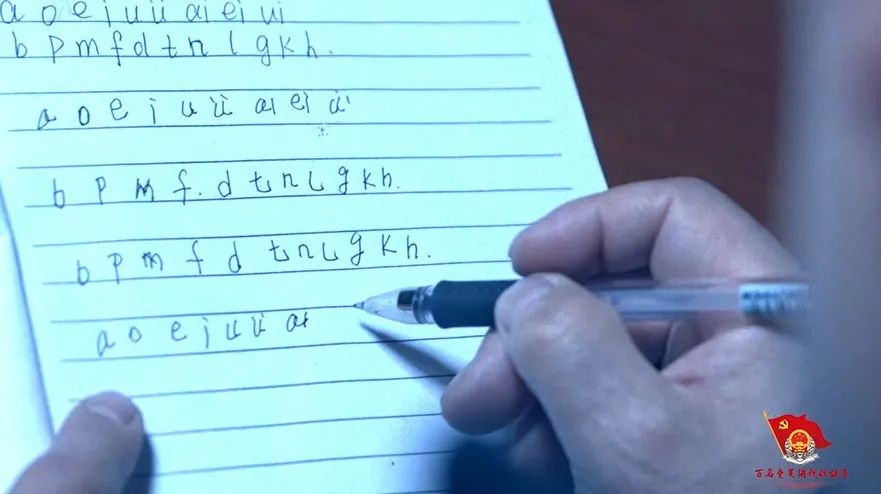 a o e i u ü ai ei ui
b p m f d t n l g k h.
a o e i u ü ai ei ui
b p m f. d t n l g k h.
b p m f d t n l g k h.
a o e i u ü ai
百名党员讲税收故事